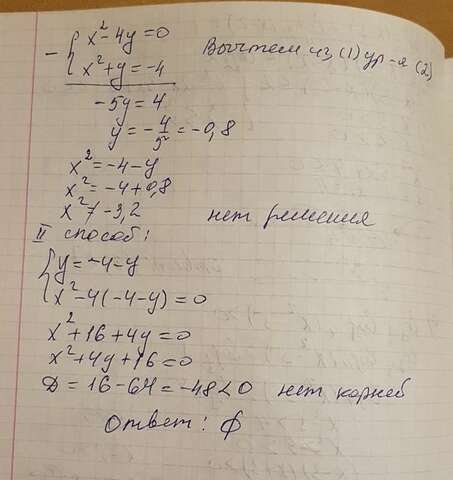 - { x² - 4y = 0
x² + y = -4
Вычтем из (1) ур-я (2)
-5y = 4
y = -4/5 = -0,8
x² = -4 - y
x² = -4 + 0,8
x² ≠ -3,2 нет решения
II способ:
{ y = -4 - y
x² - 4(-4 - y) = 0
x² + 16 + 4y = 0
x² + 4y + 16 = 0
D = 16 - 64 = -48 < 0 нет корней
Ответ: ∅